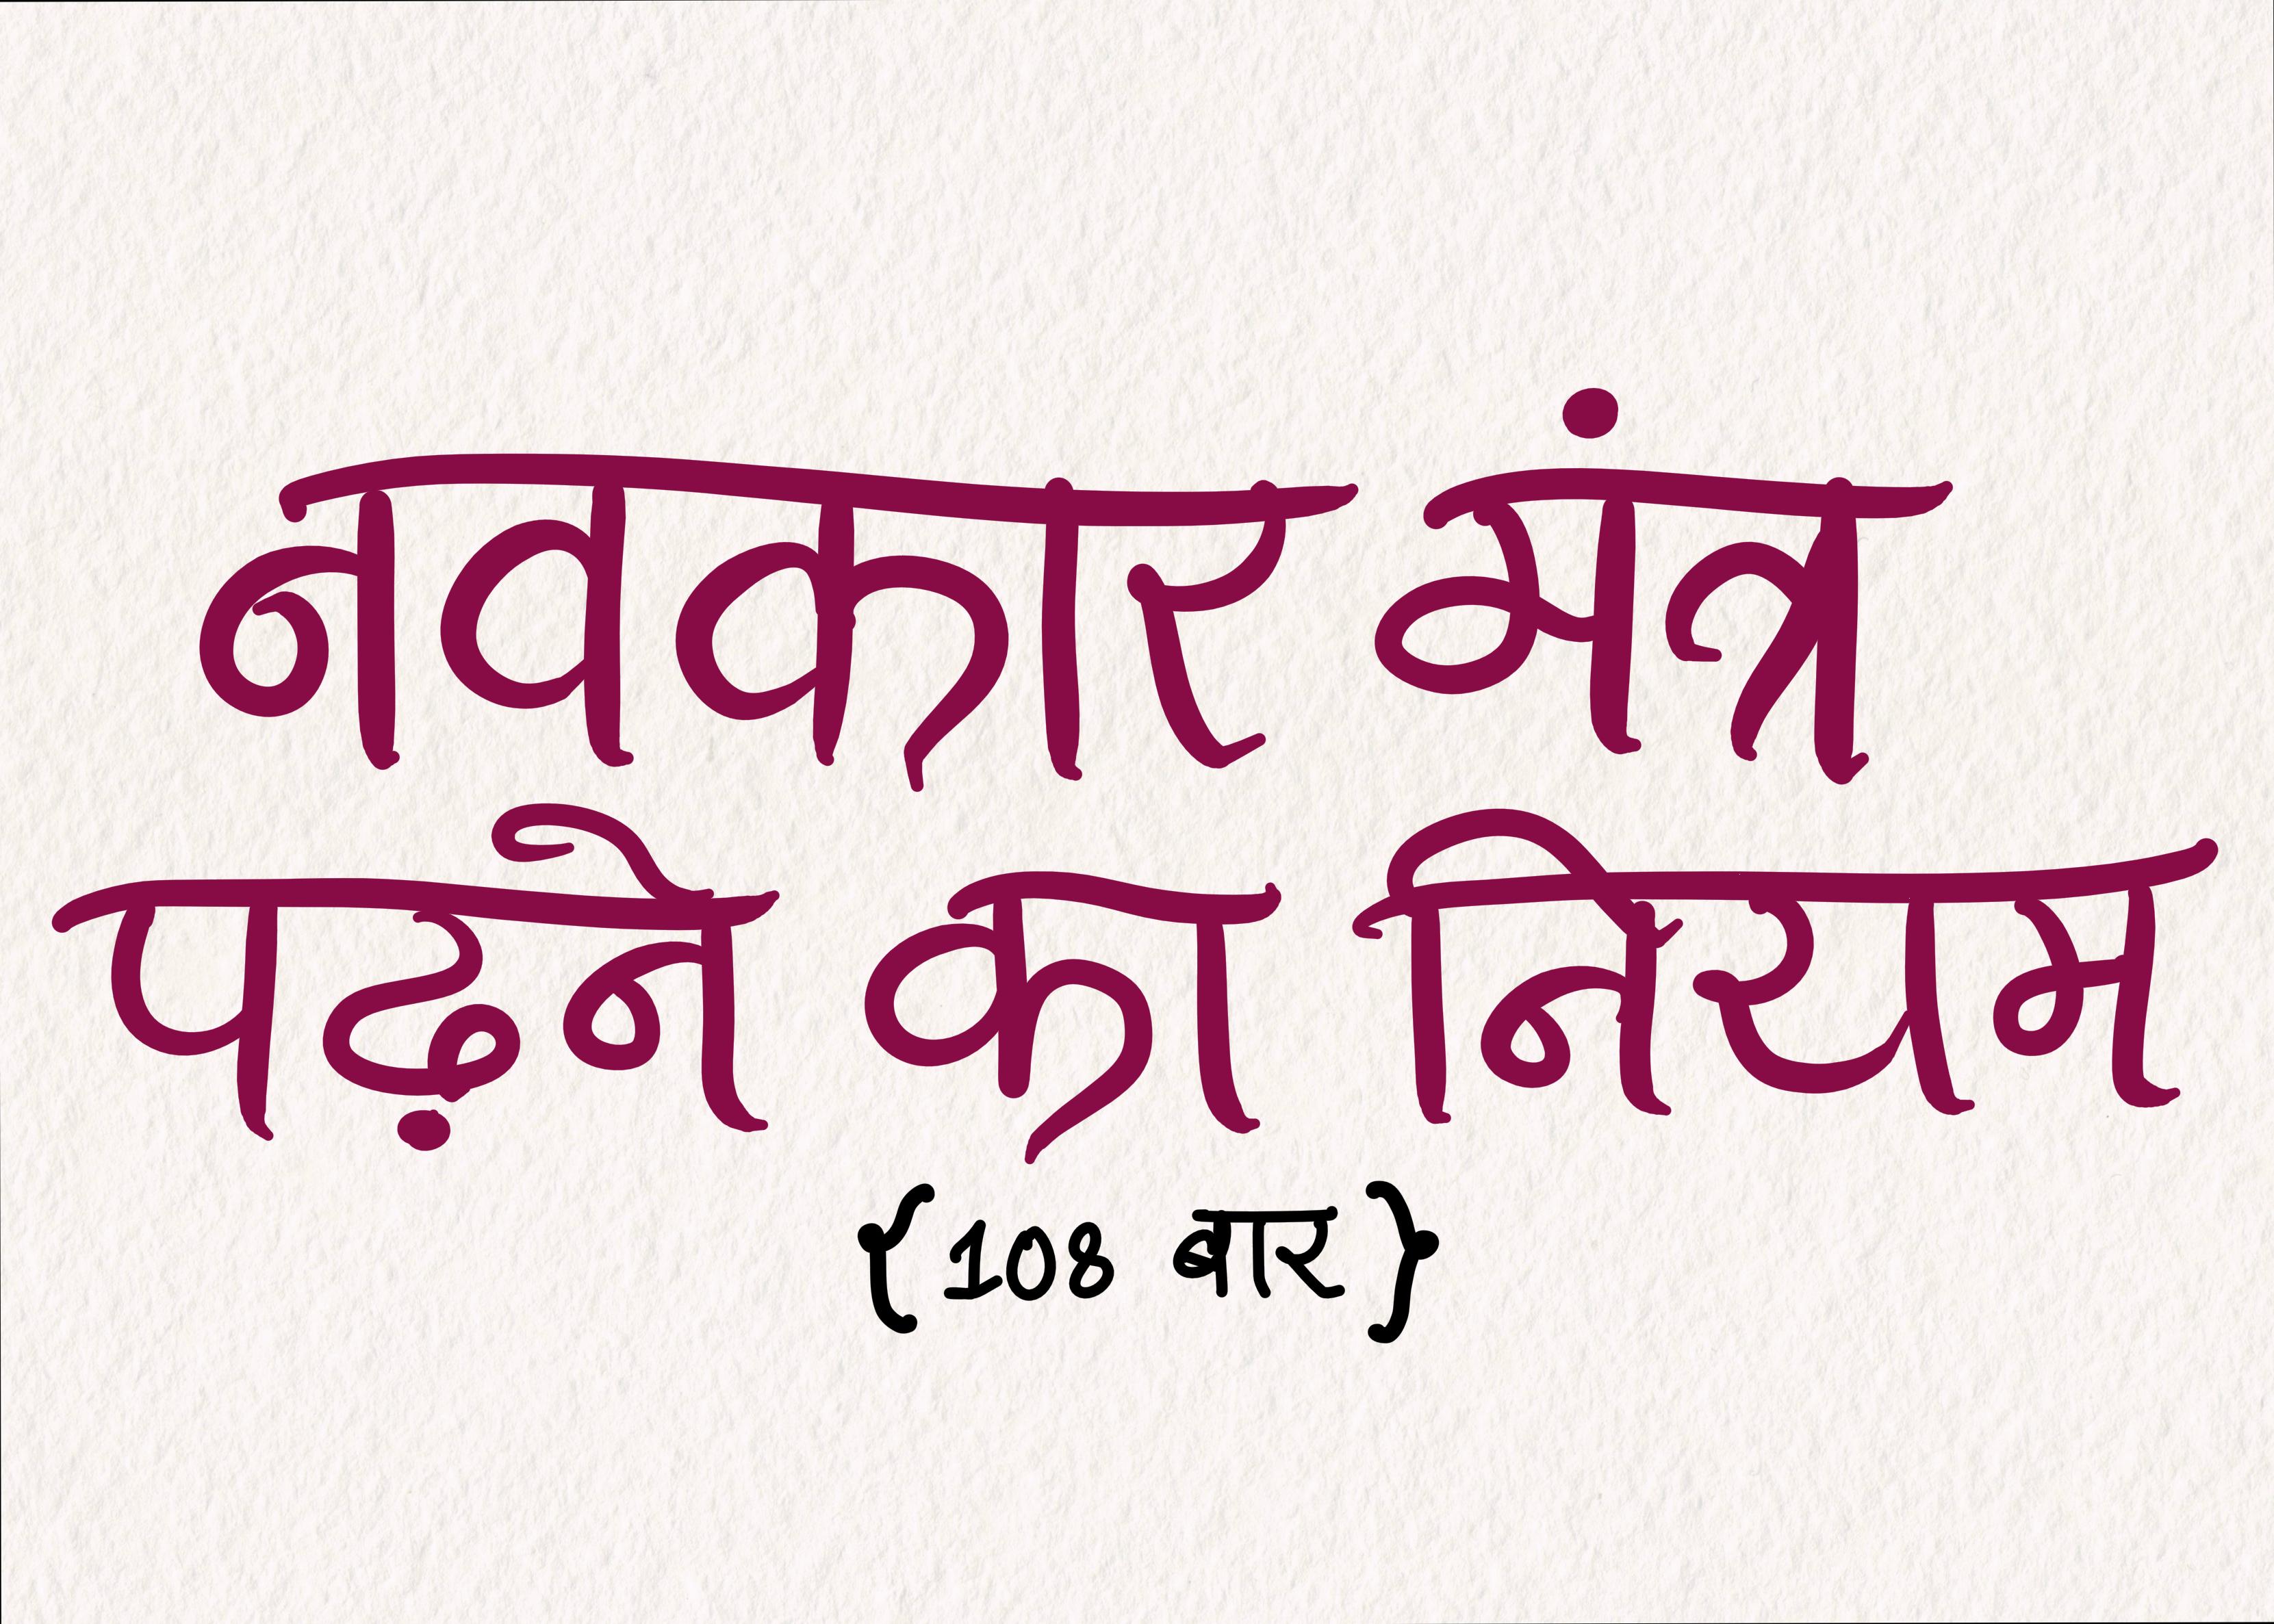 नवकार मंत्र
पढ़ने का नियम
{108 बार}